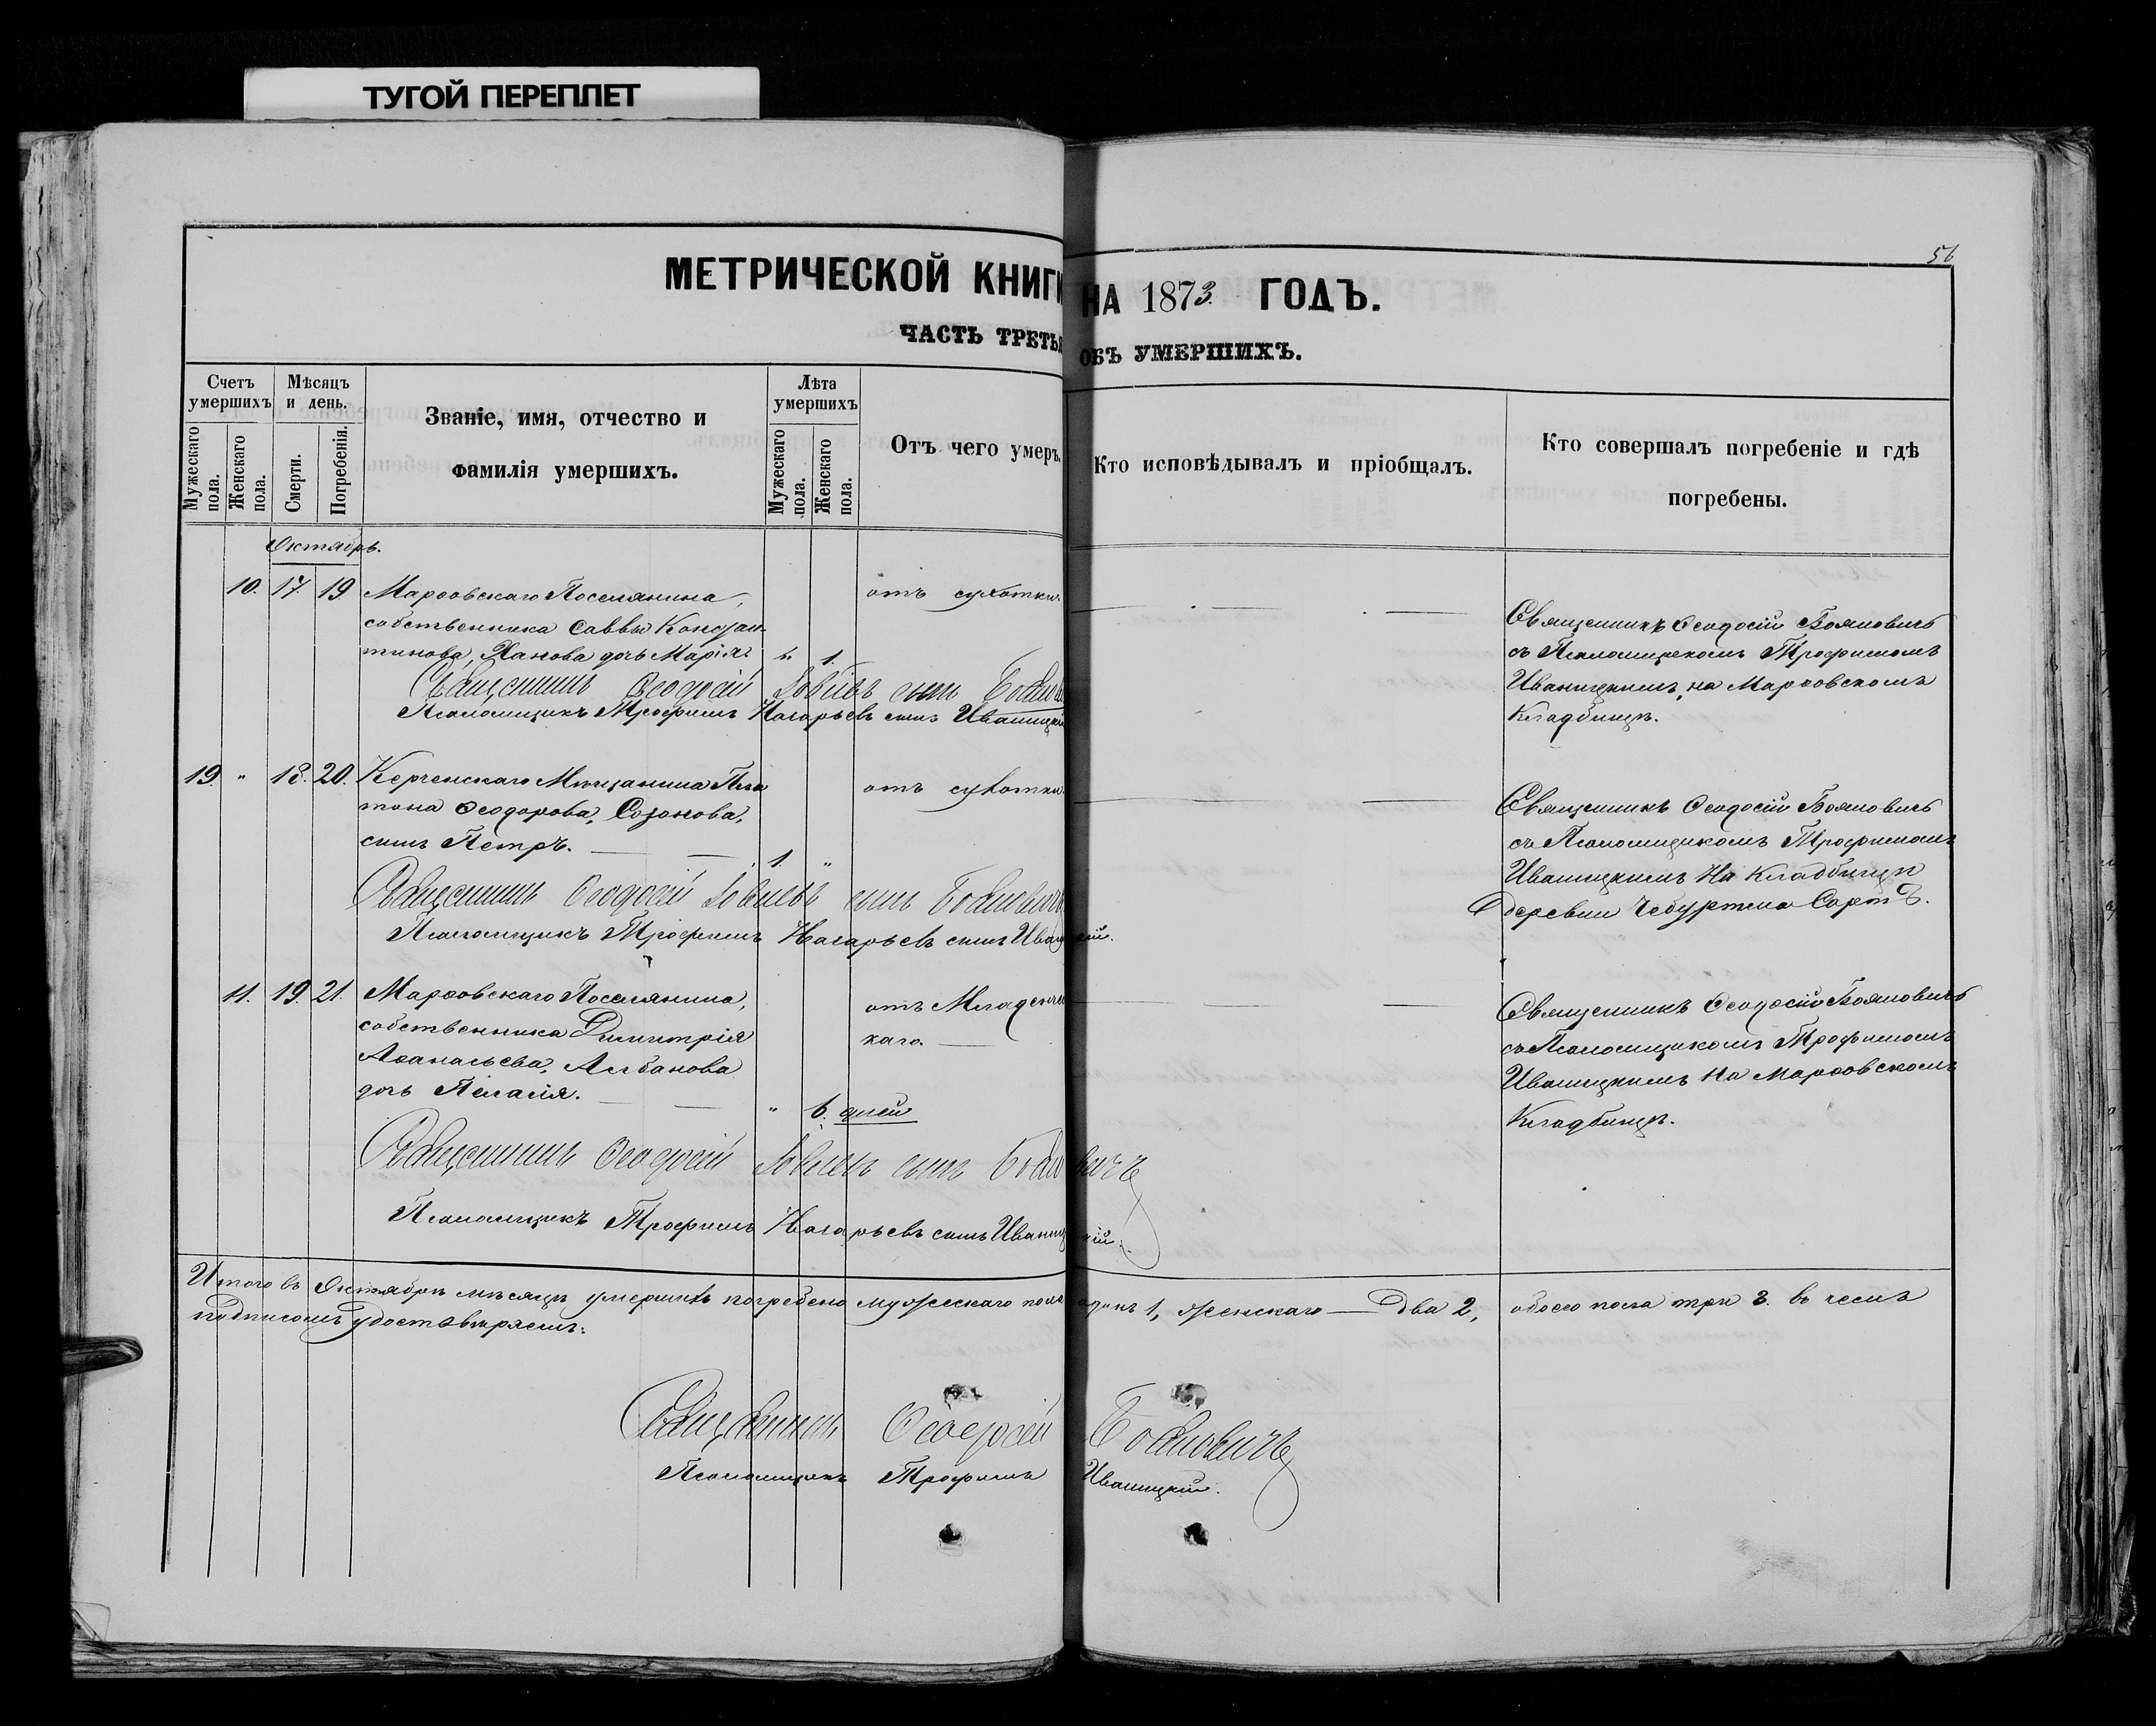 ТУГОЙ ПЕРЕПЛЕТ
56
МЕТРИЧЕСКОЙ КНИГИ НА 1873 ГОДЪ.
ЧАСТЬ ТРЕТЬЯ ОБЪ УМЕРШИХЪ.
Счетъ умершихъ
Мужескаго пола.
Женскаго пола.
Мѣсяцъ и день.
Смерти.
Погребенія.
Званіе, имя, отчество и фамилія умершихъ.
Лѣта умершихъ
Мужескаго пола.
Женскаго пола.
Отъ чего умеръ.
Кто исповѣдывалъ и пріобщалъ.
Кто совершалъ погребеніе и гдѣ погребены.
Октябрь.
10. 17. 19 Марѳовскаго Поселянина, отъ сухотки.
собственника Саввы Констан-
тинова, Ханова дочь Марія. " 1.
Священникъ Ѳеодосій Бояновичъ
съ Псаломщикомъ Трофимомъ
Иваницкимъ, на Марѳовскомъ
Кладбищѣ.
Священникъ Ѳеодосій сынъ
Псаломщикъ Трофимъ Назарьевъ сынъ Иваницкій
19. " 18. 20. Керченскаго Мѣщанина Пла отъ сухотки
тона Ѳеодорова, Созонова,
сынъ Петръ. 1. "
Священникъ Ѳеодосій Бояновичъ
съ Псаломщикомъ Трофимомъ
Иваницкимъ на Кладбищѣ
деревни Чебуртма Сортъ.
Священникъ Ѳеодосій сынъ Бояновичъ
Псаломщикъ Трофимъ Назарьевъ сынъ Иваницкій.
11. 19. 21. Марѳовскаго Поселянина, отъ Младенчес
собственника Димитрія каго.
Аѳанасьева, Албанова
дочь Пелагія. " 6. дней
Священникъ Ѳеодосій Бояновичъ
съ Псаломщикомъ Трофимомъ
Иваницкимъ на Марѳовскомъ
Кладбищѣ.
Священникъ Ѳеодосій сынъ Бояновичъ
Псаломщикъ Трофимъ Назарьевъ сынъ Иваницкій.
Итого въ Октябрѣ мѣсяцѣ умершихъ погребено мужескаго пола одинъ 1, женскаго два 2, обоего пола три 3. въ чемъ
подписомъ удостовѣряемъ:
Священникъ Ѳеодосій Бояновичъ
Псаломщикъ Трофимъ Иваницкій.